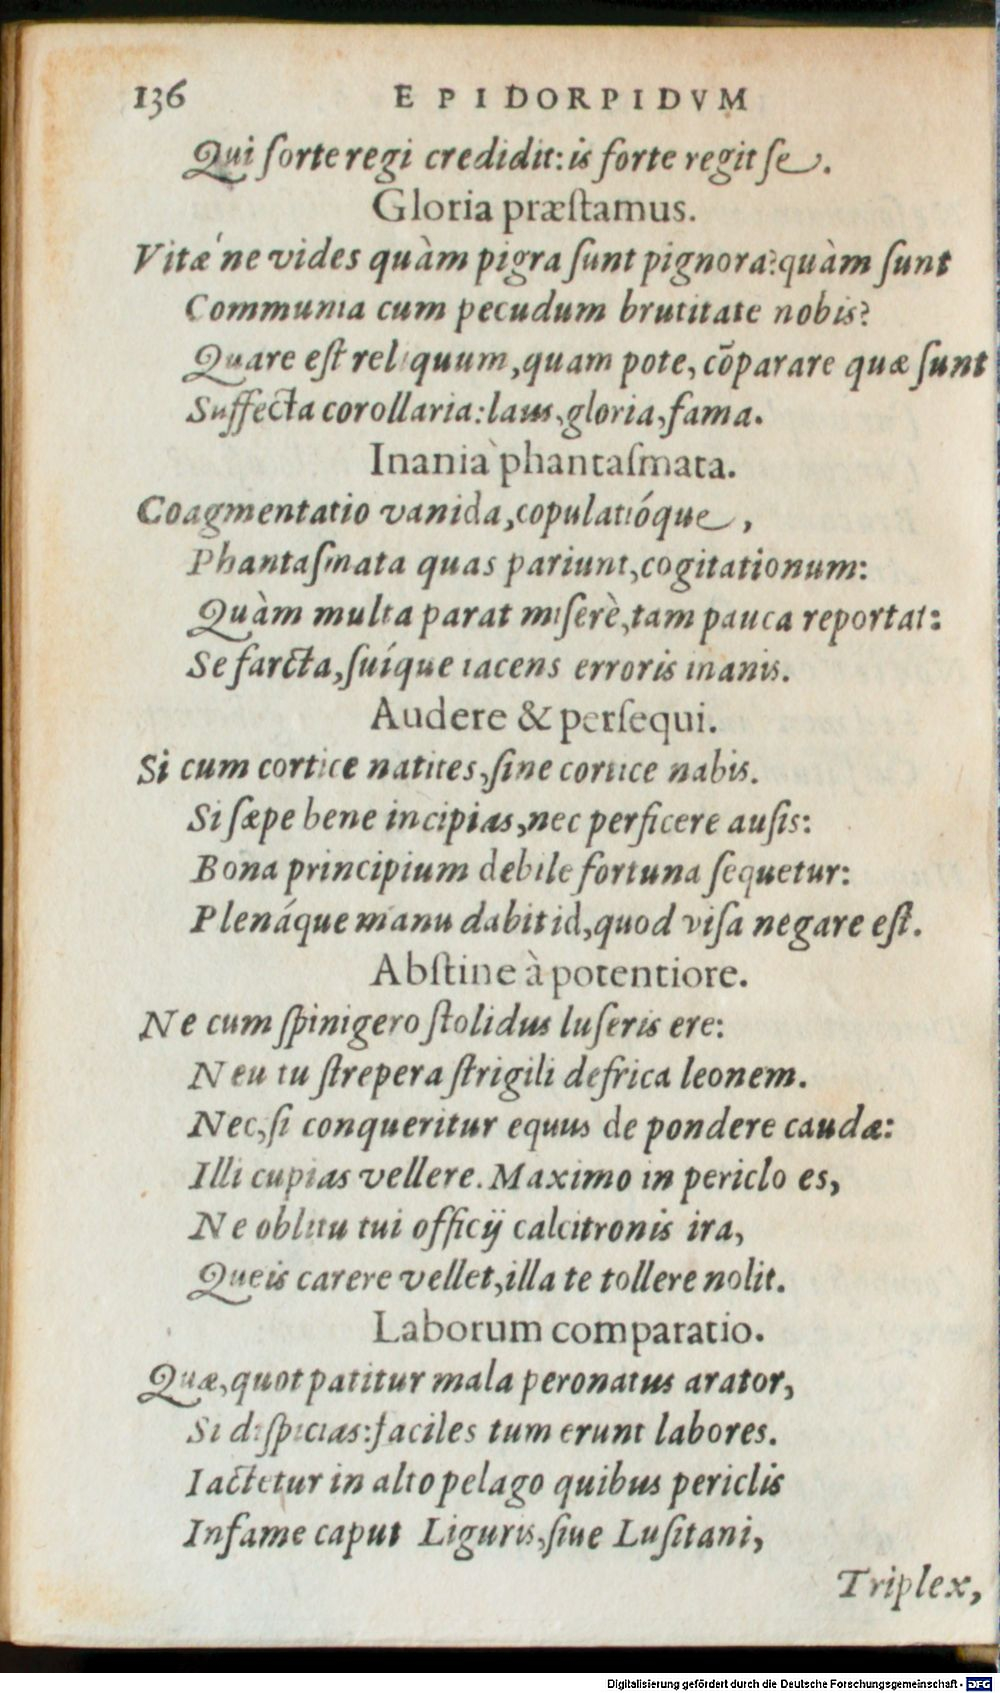 136 EPIDORPIDVM
Qui ſorte regi credidit: is forte regit ſe.
Gloria præſtamus.
Vitæ´ne vides quàm pigra ſunt pignora? quàm ſunt
Communia cum pecudum brutitate nobis?
Quare eſt reliquum, quam pote, cōparare quæ ſunt
Suffecta corollaria: laus, gloria, fama.
Inania phantaſmata.
Coagmentatio vanida, copulatióque,
Phantaſmata quas pariunt, cogitationum:
Quàm multa parat miſerè, tam pauca reportat:
Se farcta, ſuíque iacens erroris inanis.
Audere & perſequi.
Si cum cortice natites, ſine cortice nabis.
Si ſæpe bene incipias, nec perficere auſis:
Bona principium debile fortuna ſequetur:
Plenáque manu dabit id, quod viſa negare eſt.
Abſtine à potentiore.
Ne cum ſpinigero ſtolidus luſeris ere:
Neu tu ſtrepera ſtrigili defrica leonem.
Nec, ſi conqueritur equus de pondere caudæ:
Illi cupias vellere. Maximo in periclo es,
Ne oblitu tui officij calcitronis ira,
Queis carere vellet, illa te tollere nolit.
Laborum comparatio.
Quæ, quot patitur mala peronatus arator,
Si diſpicias: faciles tum erunt labores.
Iactetur in alto pelago quibus periclis
Infame caput Liguris, ſiue Luſitani,
Triplex,
Digitalisierung gefördert durch die Deutsche Forschungsgemeinschaft - DFG